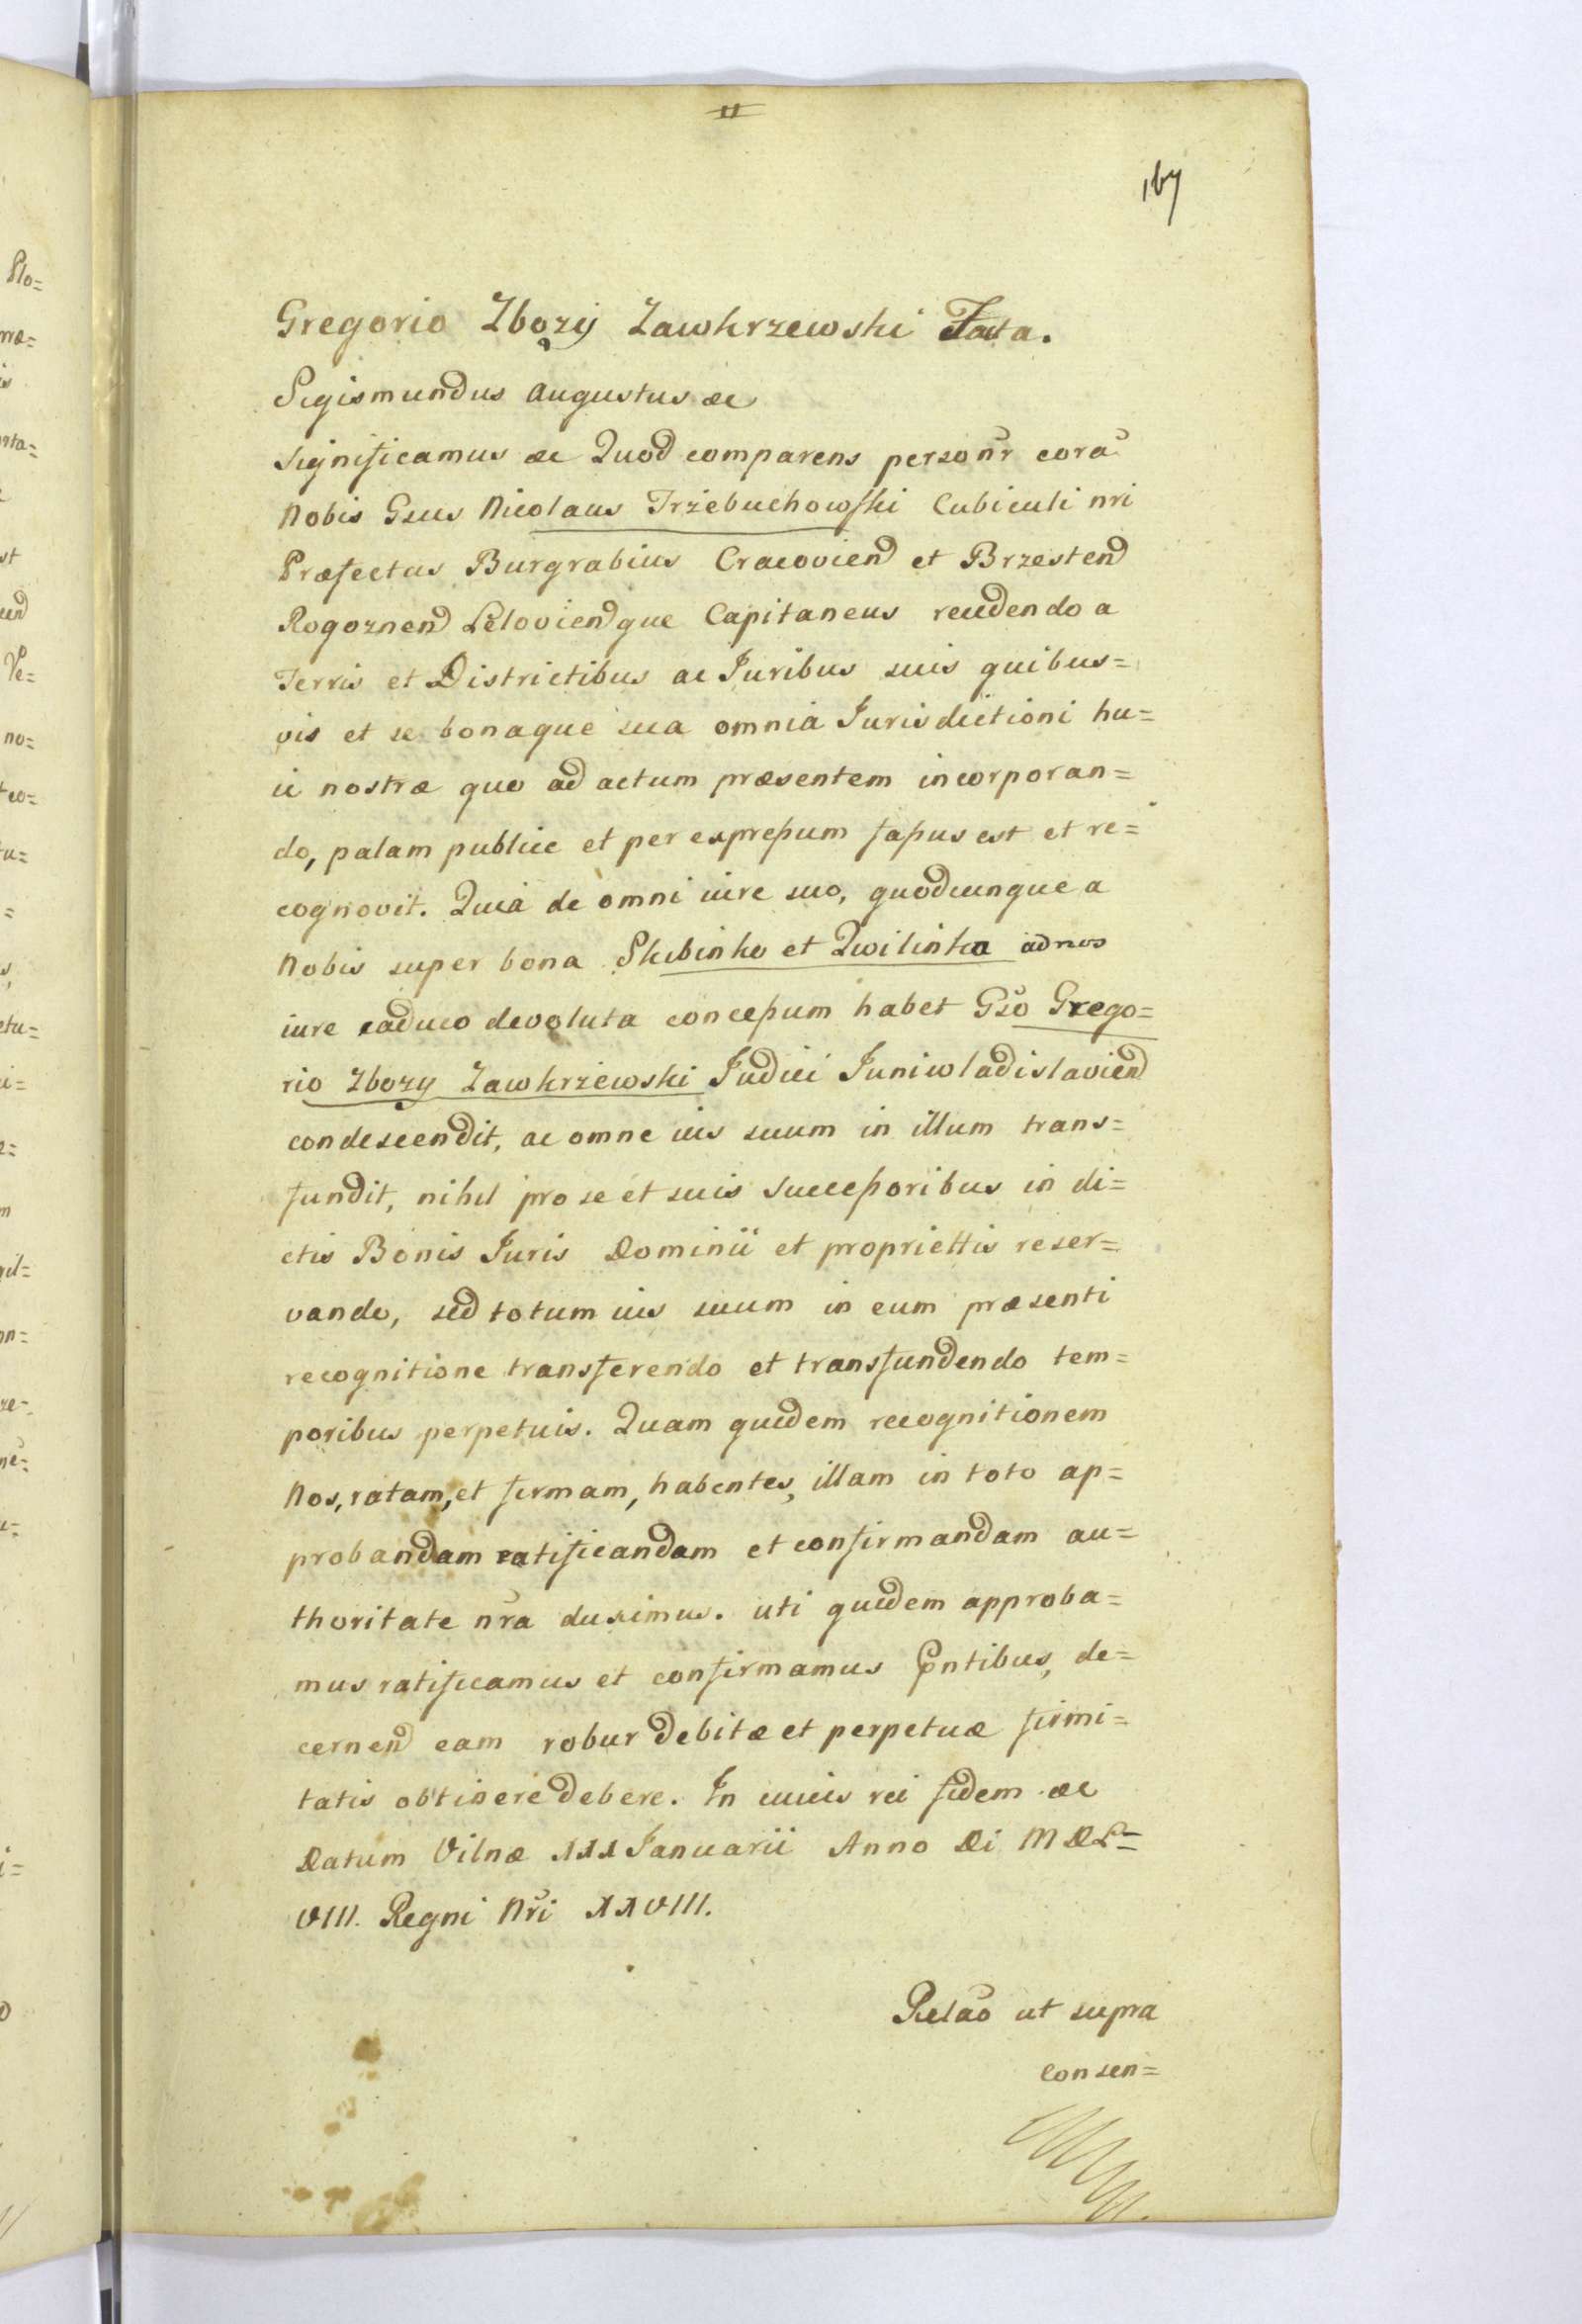 11
167
Gregorio Zbozy Zawkrzewski Facta.
Sigismundus Augustus æc
significamus æc Quod comparens personr cora
Nobis Gsus Nicolaus Trzebuchowski Cubiculi nri
Præfectus Burgrabius Cracoviend et Brzestend
Rogoznend Leloviendque Capitaneus recedendo a
Terris et Districtibus ac Juribus suis quibus=
vis et se bonaque sua omnia Jurisdictioni hu=
ic nostræ quo ad actum præsentem incorporan=
do, palam publice et per expressum fassus est et re=
cognovit. Quia de omni iure suo, quodcunque a
Nobis super bona Skibinko et Qwilinka ad nos
iure caduco devoluta concessum habet Gso Grego=
rio Zbozy Zawkrzewski Judici Juniwladislaviend
condescendit, ac omne ius suum in illum trans=
fundit, nihil pro se et suis successoribus in di=
ctis Bonis Juris Dominii et propriettis reser=
vando, sed totum ius suum in eum præsenti
recognitione transferendo et transfundendo tem=
poribus perpetuis. Quam quidem recognitionem
Nos, ratam, et firmam, habentes, illam in toto ap=
probandam ratificandam et confirmandam au=
thoritate nra duximus. uti quidem approba=
mus ratificamus et confirmamus Pntibus, de=
cernend eam robur debitæ et perpetuæ firmi=
tatis obtinere debere. In cuius rei fidem æc
Datum Vilnæ XXX Januarii Anno Di MDL=
VIII. Regni Nri XXVIII.
Relao ut supra
Consen=